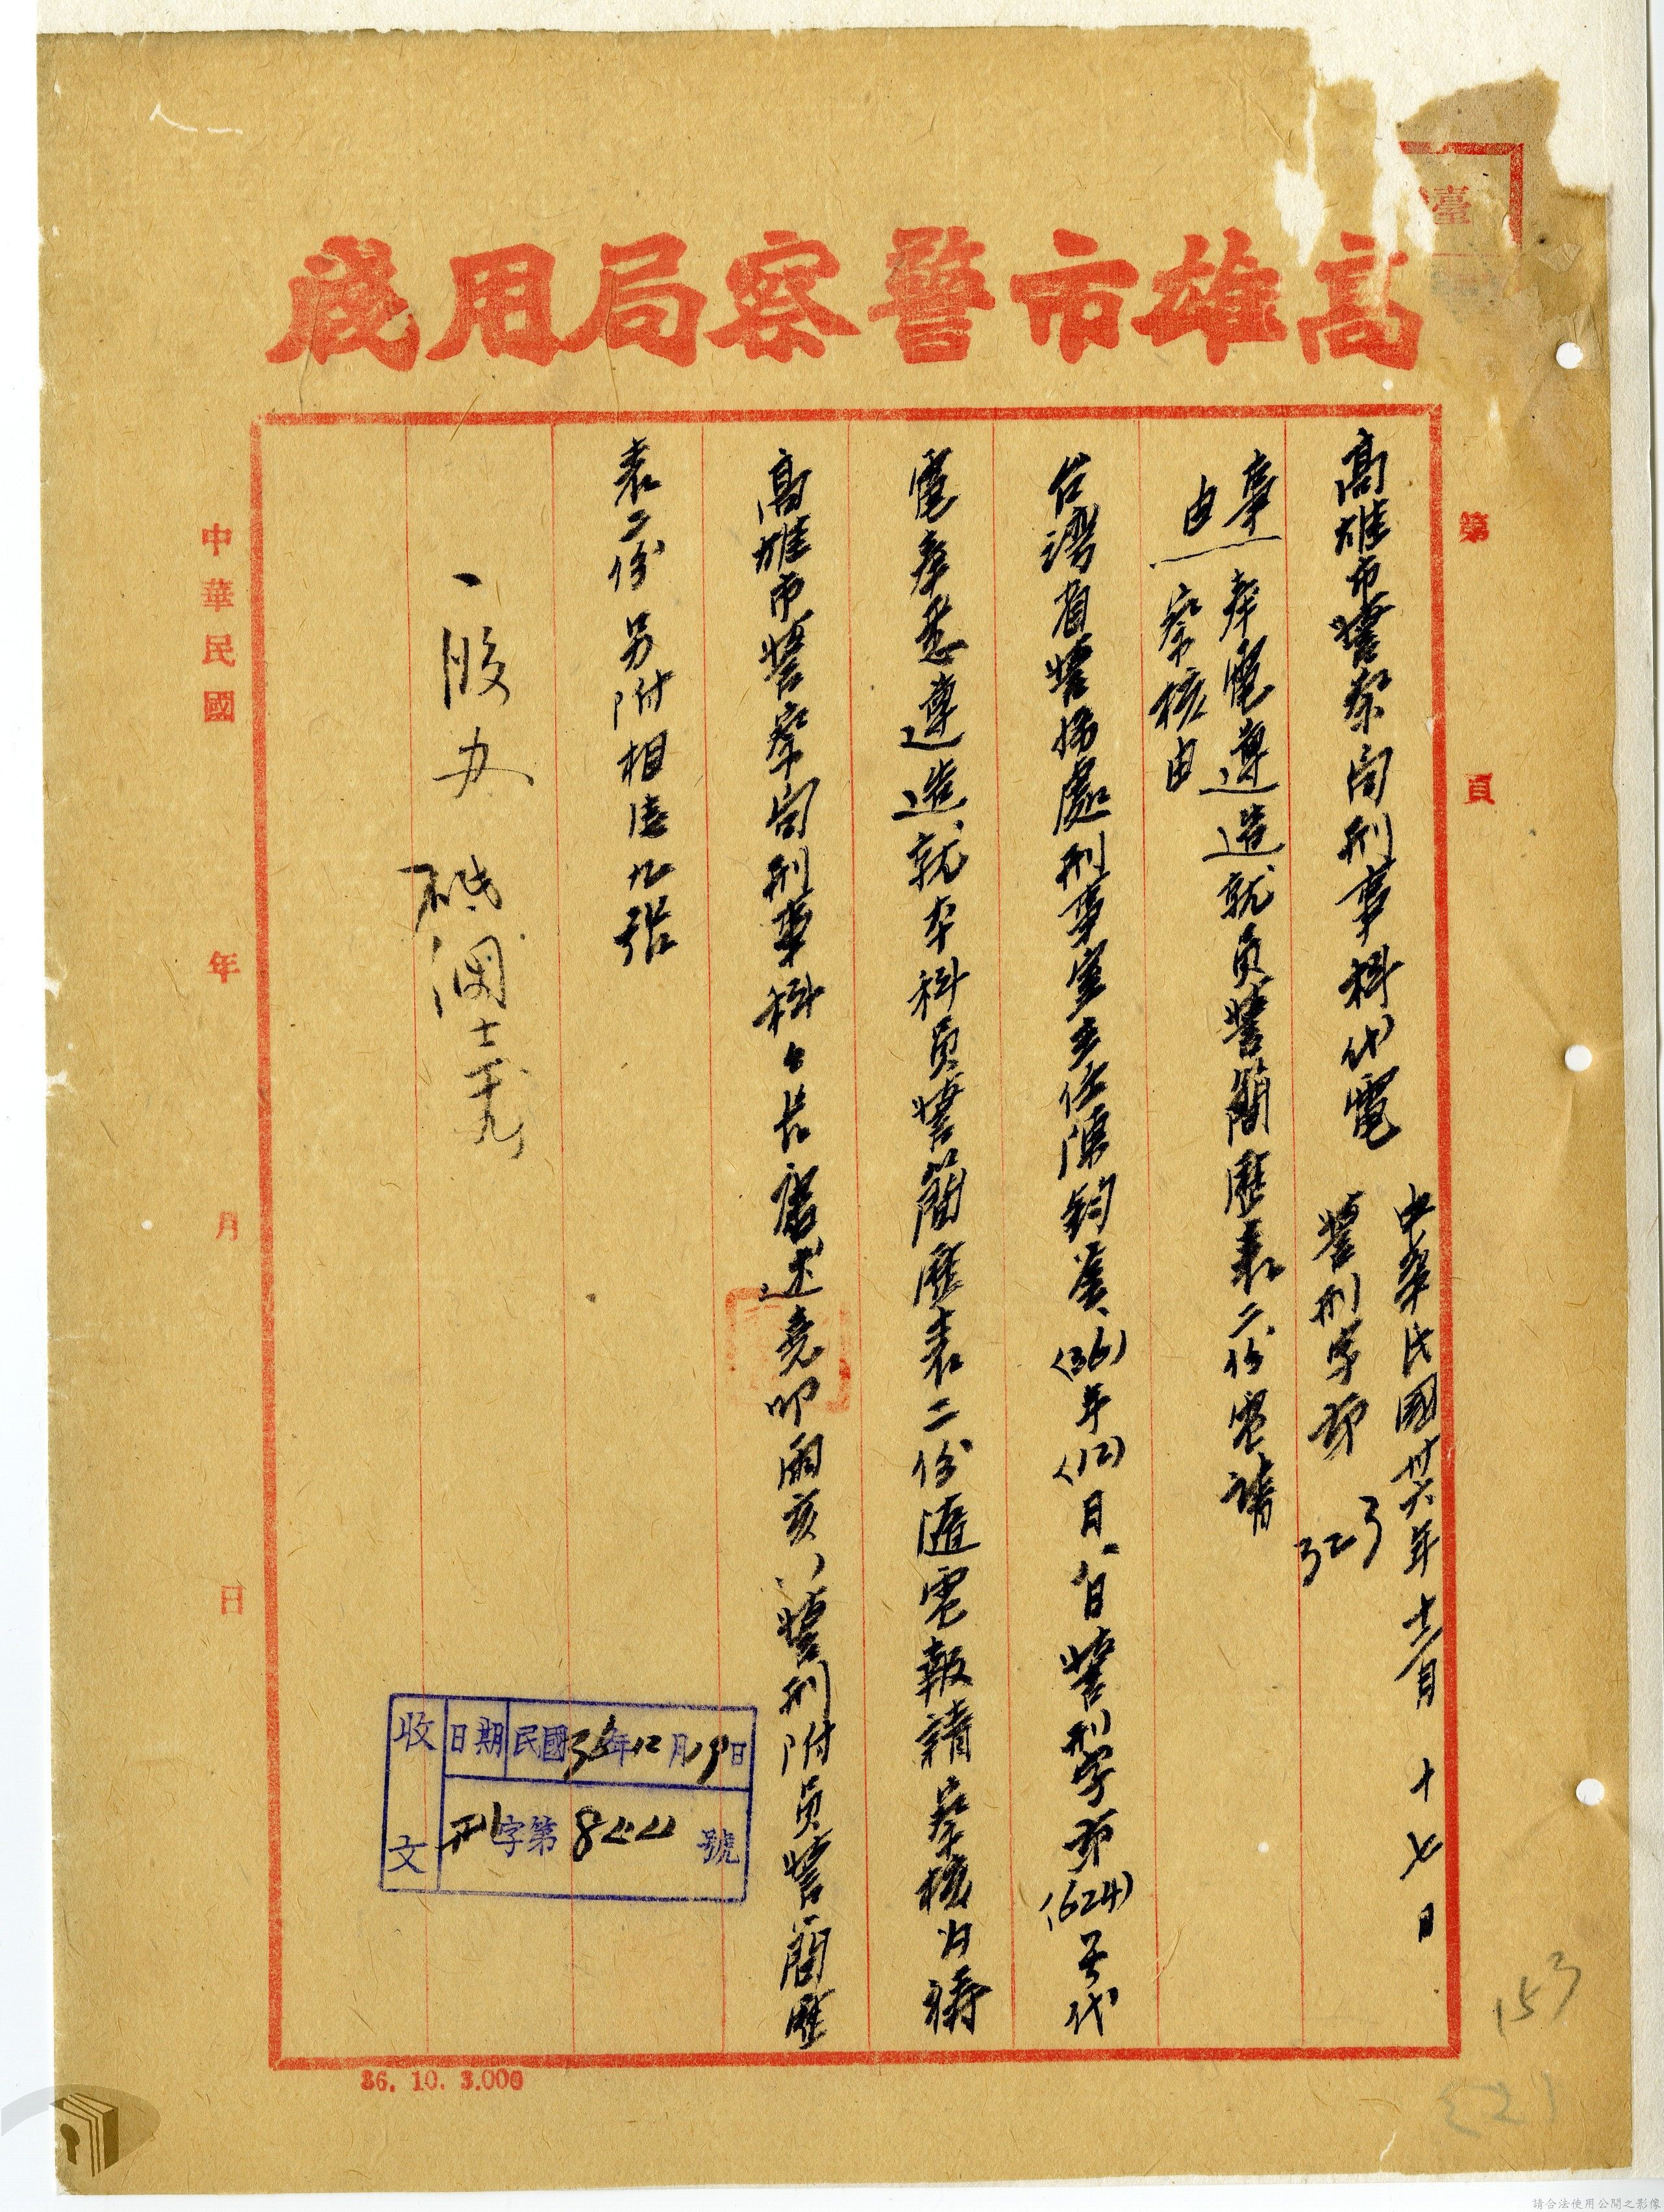 臺
高雄市警察局用箋
第 頁
高雄市警察局刑事科代電
中華民國卅六年十二月十七日
警刑字第 323
事由
奉電遵造就員警簡歷表二份電請
察核由
台灣省警務處刑事室主任陳鈞鑒(36)年(12)月 日警刑字第(624)号代
電奉悉遵造就本科員警簡歷表二份隨電報請察核为禱
高雄市警察局刑事科科長 述堯叩 亥 警刑附員警簡歷
表二份另附相片 九張
一股办
十二 十九
收文
日期 民國36年12月19日
刑字第 844 號
中華民國 年 月 日
36. 10. 3.000
153
請合法使用公開之影像